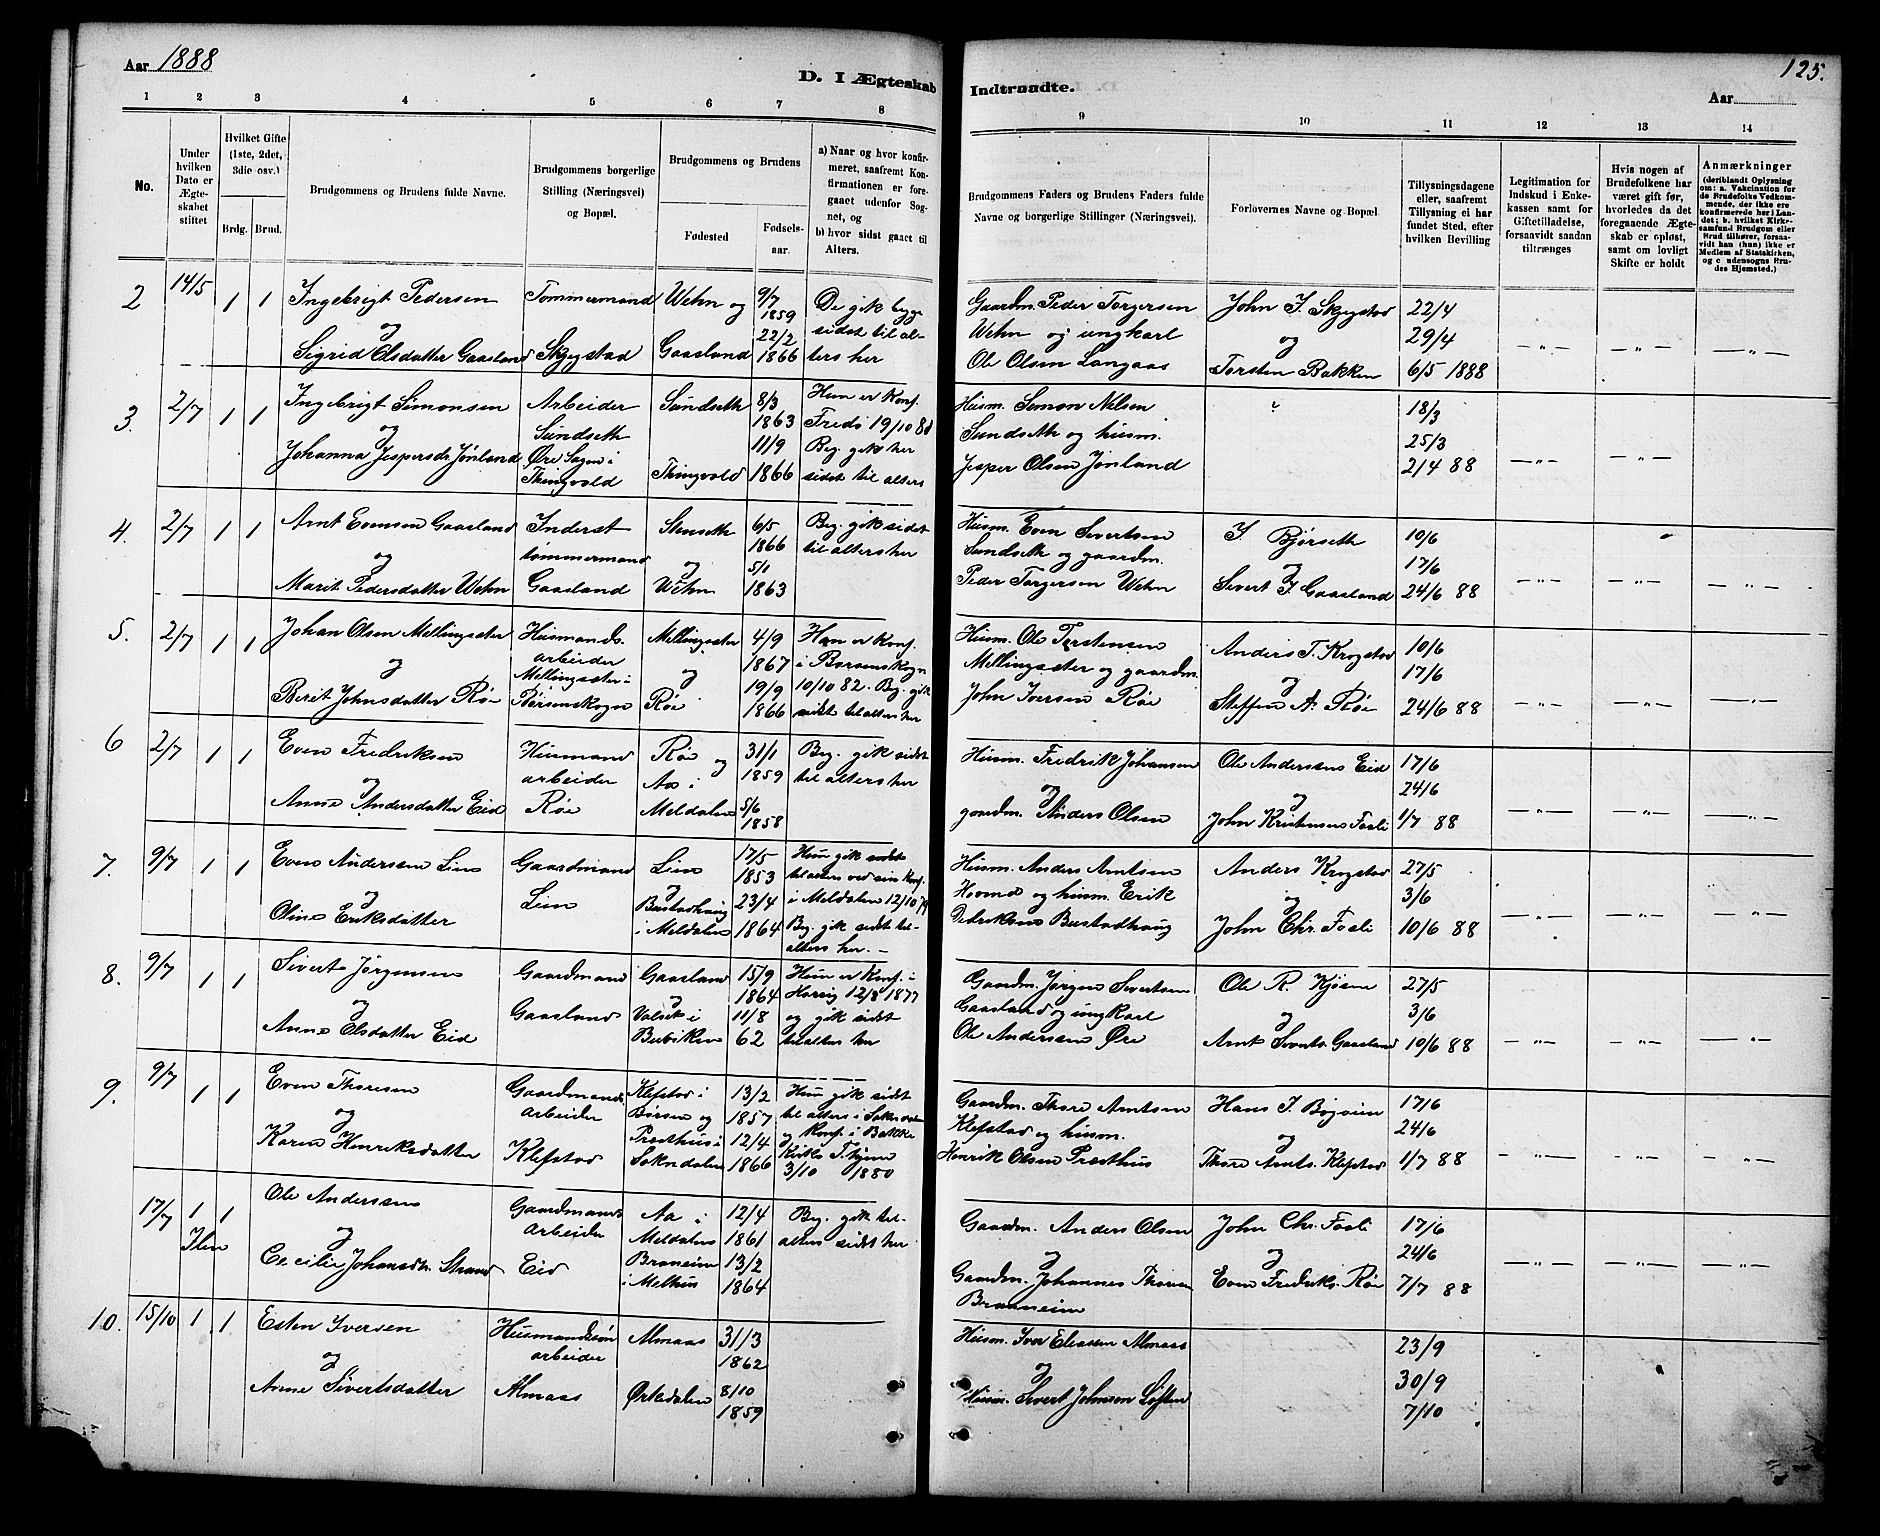 Aar 1888
D. I Ægteskab Indtraadte.
125.
Aar
1 2 3 4 5 6 7 8 9 10 11 12 13 14
No.
Under hvilken Dato er Ægteskabet stiftet
Hvilket Gifte (1ste, 2det, 3die osv.)
Brdg. Brud.
Brudgommens og Brudens fulde Navne.
Brudgommens borgerlige Stilling (Næringsvei) og Bopæl.
Brudgommens og Brudens
Fødested
Fødselsaar.
a) Naar og hvor konfirmeret, saafremt Konfirmationen er foregaaet udenfor Sognet, og
b) hvor sidst gaaet til Alters.
Brudgommens Faders og Brudens Faders fulde Navne og borgerlige Stillinger (Næringsvei).
Forlovernes Navne og Bopæl
Tillysningsdagene eller, saafremt Tillysning ei har fundet Sted, efter hvilken Bevilling
Legitimation for Indskud i Enkekassen samt for Giftetilladelse, forsaavidt saadan tiltrænges
Hvis nogen af Brudefolkene har været gift før, hvorledes da det foregaaende Ægteskab er opløst, samt om lovligt Skifte er holdt
Anmærkninger (deriblandt Oplysning om: a. Vakcination for de Brudefolks Vedkommende, der ikke ere konfirmerede her i Landet; b. hvilket Kirkesamfund Brudgom eller Brud tilhører, forsaavidt han (hun) ikke er Medlem af Statskirken, og c. udensogns Brudes Hjemsted.)
2 14/5 1 1 Ingebrigt Pedersen og Sigrid Olsdatter Gaasland
Tømmermand Skjegstad
Wehn og Gaasland
9/7 1859 22/2 1866
De gik begge sidst til alters her
Gaardm. Peder Torgersen Wehn og ungkarl Ole Olsen Langaas
John I. Skjegstad og Torsten Bakken
22/4 29/4 6/5 1888
3. 2/7 1 1 Ingebrigt Simonsen og Johanna Jespersdr Jønland
Arbeider Sundseth Øre Sogn i Thingvold
Sundseth Thingvold
8/3 1863 11/9 1866
Hun er Konf. Fredø 19/10 81 Beg. gik her sidst til alters
Husm. Simon Nilsen Sundseth og husm. Jesper Olsen Jønland
18/3 25/3 2/4 88
4. 2/7 1 1 Arnt Evensen Gaasland og Marit Pedersdatter Wehn
Inderst tømmermand Gaasland
Stenseth og Wehn
6/5 1866 5/1 1863
Beg. gik sidst til alters her
Husm. Even Sivertsen Sundseth og gaardm. Peder Torgersen Wehn
I. Bjørseth og Sivert I. Gaasland
10/6 17/6 24/6 88
5. 2/7 1 1 Johan Olsen Mellingsæter og Berit Johnsdatter Røe
Husmands. arbeider Mellingsæter i Børsenskogn
Mellingsæter og Røe
4/9 1867 19/9 1866
Han er Konf. i Børsenskogn 10/10 82. Beg. gik sidst til alters her
Husm. Ole Torstensen Mellingsæter og gaardm. John Iversen Røe
Anders T. Krogstad og Steffen A. Røe
10/6 17/6 24/6 88
6 2/7 1 1 Even Fredriksen og Anne Andersdatter Eid
Husmand arbeider Røe
Røe og Aa i Meldalen
31/1 1859 5/6 1858
Beg. gik sidst til alters her
Husm. Fredrik Johansen og gaardm. Anders Olsen
Ole Andersens Eid og John Kristensen Fosli
17/6 24/6 1/7 88
7. 9/7 1 1 Even Andersen Lien og Oline Eriksdatter
Gaardmand Lien
Lien og Bustadhaug i Meldalen
17/5 1853 23/4 1864
Hun gik sidst til alters ved sin Konf. i Meldalen 12/10 79 Beg. gik sidst til alters her.
Husm. Anders Arntsen Hovmo og husm. Erik Dedriksen Bustadhaug
Anders Krogstad og John Chr. Fosli
27/5 3/6 10/6 88
8. 9/7 1 1 Sivert Jørgensen og Anne Olsdatter Eid
Gaardmand Gaasland
Gaasland og Valset i Budviken
15/9 1864 11/8 62
Hun er Konf. i 12/8 1877 og gik sidst til alters her
Gaardm. Jørgen Sivertsen Gaasland og ungkarl Ole Andersen Øre
Ole R. Kjøsen og Arnt Siverts. Gaasland
27/5 3/6 10/6 88
9. 9/7 1 1 Even Thoresen og Karen Henriksdatter
Gaardmands. arbeider Klefstad
Klefstad i Børsen og Præsthus i Soknedalen
13/2 1857 12/4 1866
Hun gik sidst til alters i Soknedalen og Konf. i Bakke Kirke T.hjem 3/10 1880
Gaardm. Thore Arntsen Klefstad og husm. Henrik Olsen Præsthus
Hans I. Bøgseien og Thore Arnts. Klefstad
17/6 24/6 1/7 88
17/7 1 1 Ole Andersen og Cecilie Johansdr. Strand
Gaardmands arbeider Eid
Aa i Meldalen Braneim i Melhus
12/4 1861 13/2 1864
Beg. gik til alters sidst her
Gaardm. Anders Olsen og Gaardm. Johannes Thores. Braaneim
John Chr. Fosli og Even Fredriks. Røe
17/6 24/6 7/7 88
10. 15/10 1 1 Esten Iversen og Anne Sivertsdatter
Husmandssøn arbeider Almaas
Almaas Ørkedalen
31/3 1862 8/10 1859
Husm. Iver Eliassen Almaas og Husm. Sivert Johnsen Løften
23/9 30/9 7/10